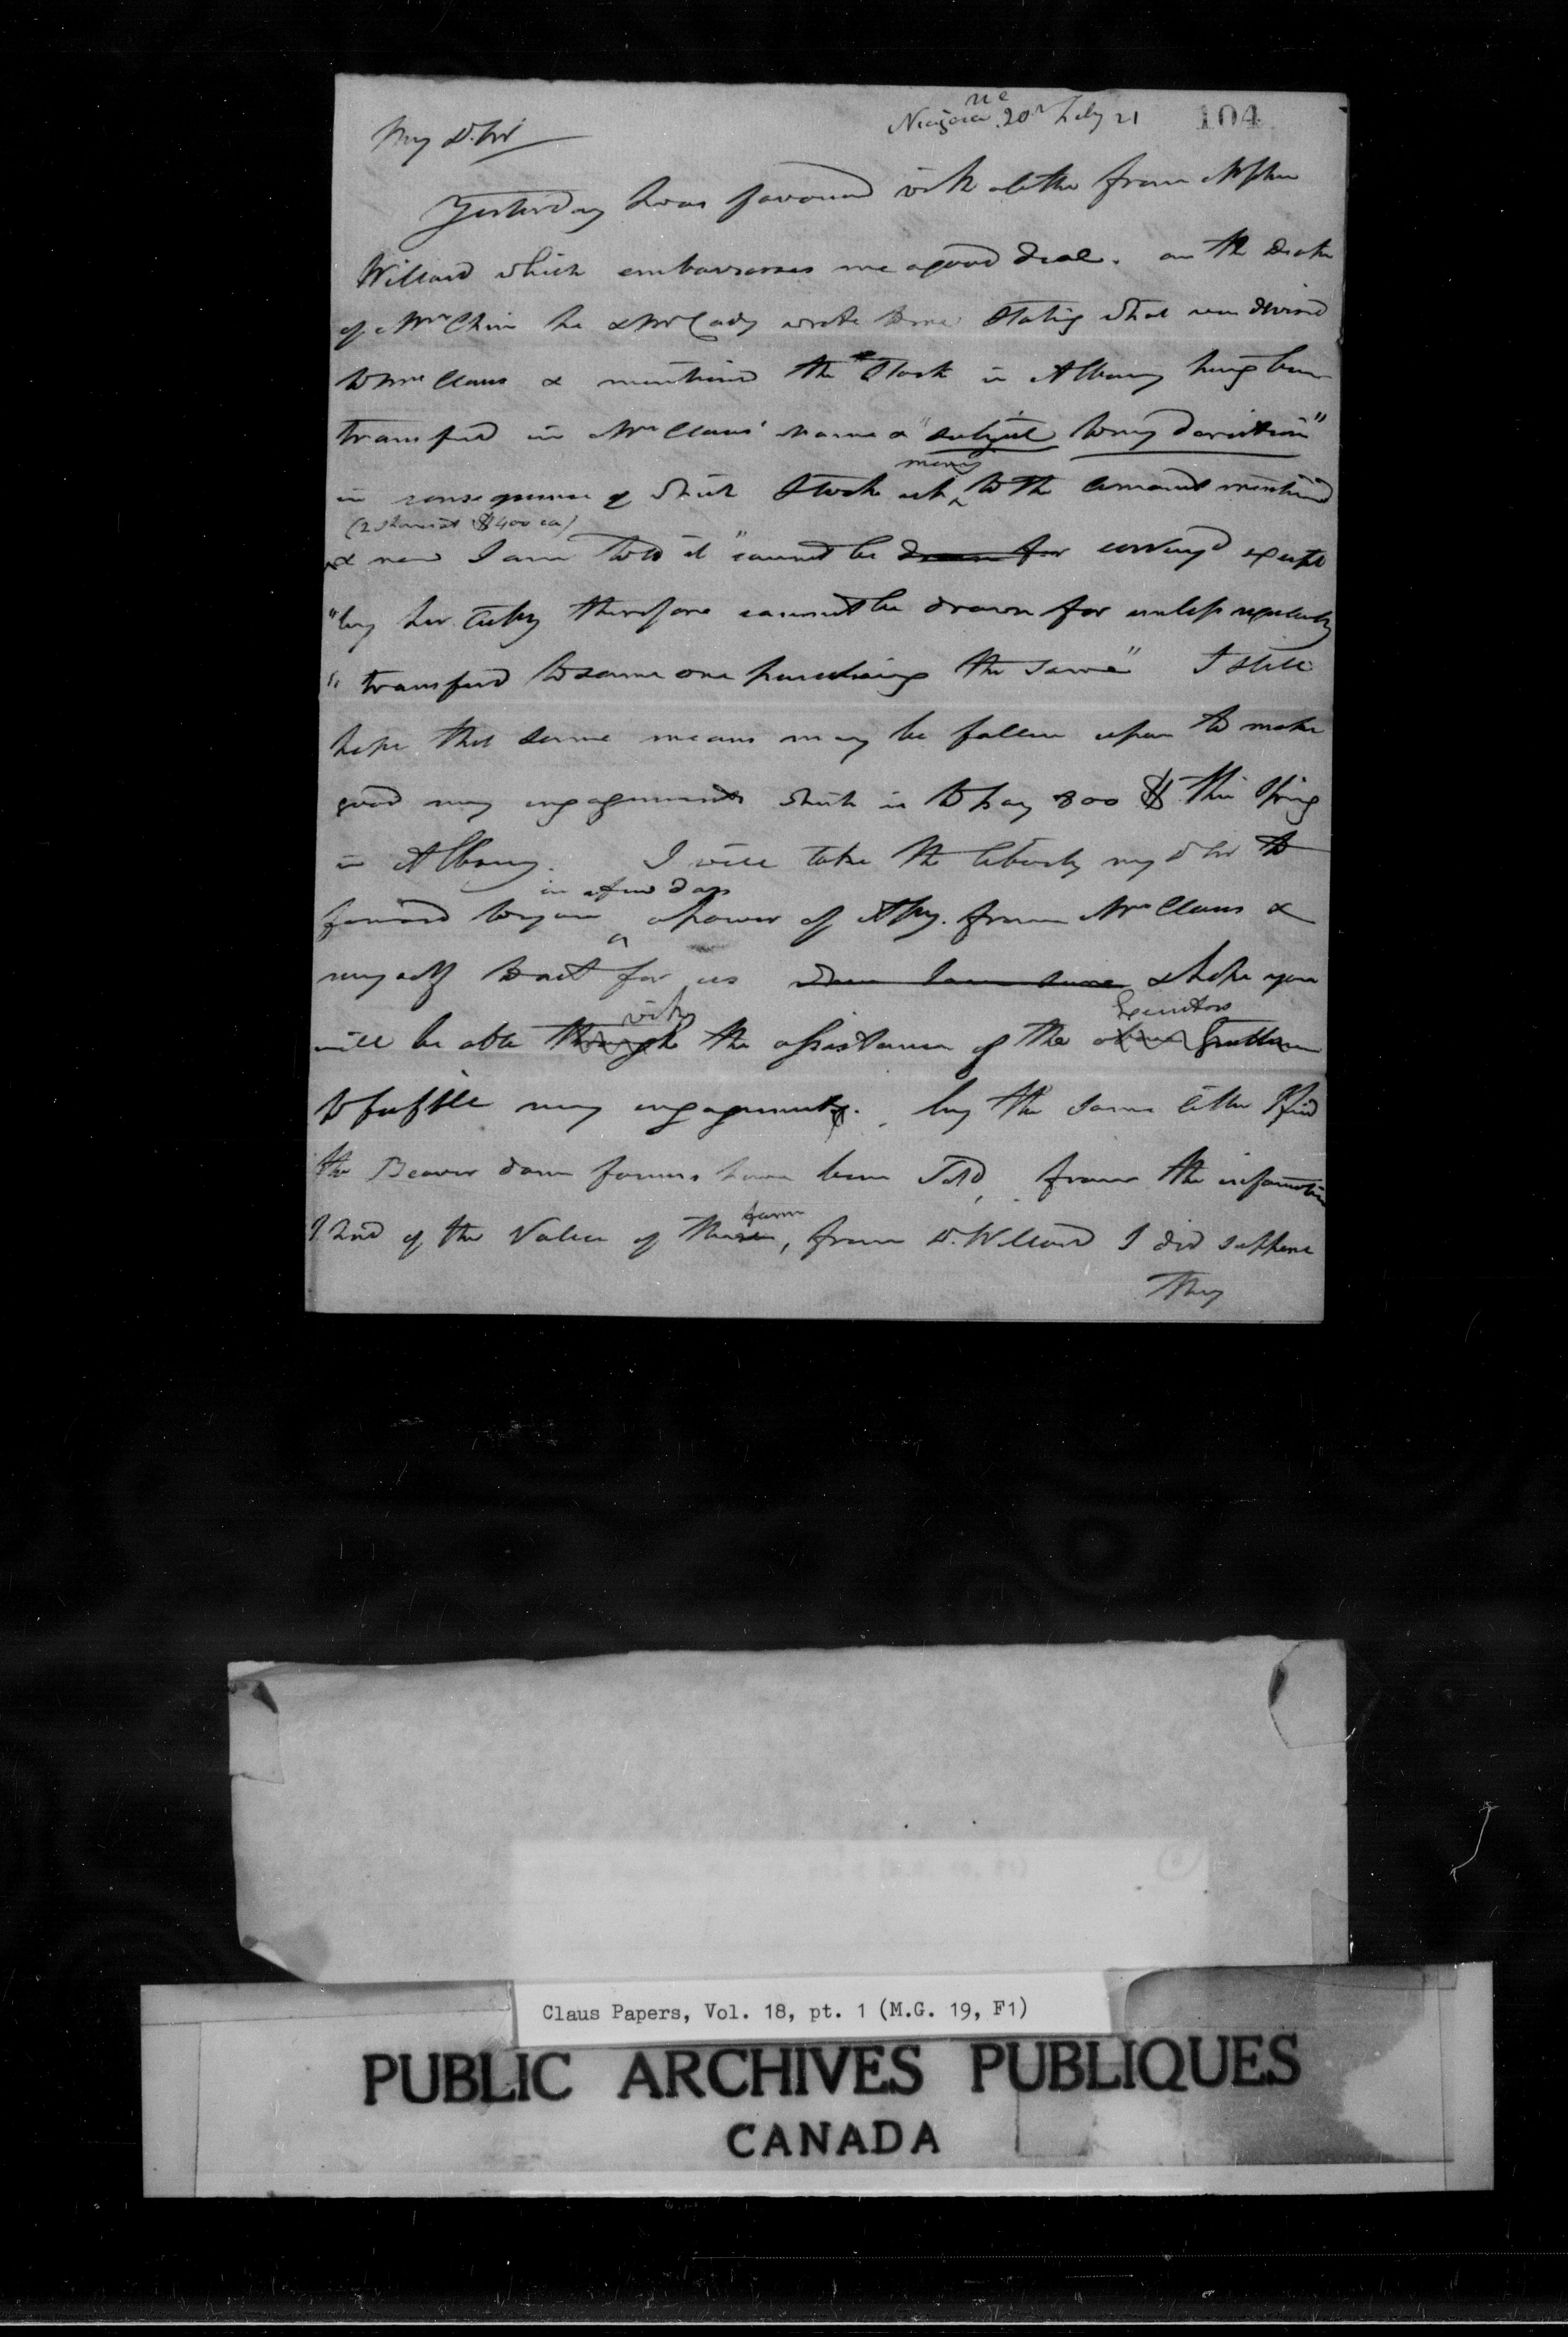 Niagara 20 Feby 21
104
My D. Sir
Yesterday I was favoured with a letter from
Willard which embarrasses me a good deal. on the Death
of Mrs Chin he & Mr Cady wrote to me stating what was devised
to Mrs Claus & mentioned the Stock in Albany having been
transfered in Mrs Claus' name & "subject to my direction"
in consequence of which Stock money to the amount mentioned
(2 Shares at $400 ea)
& now I am told it "cannot be drawn for convey'd except
"by her therefore cannot be drawn for unless regularly
"transfered to some one purchasing the same" I still
hope that some means may be fallen upon to make
good my engagements which is to pay 800 $ this Spring
in Albany. I will take the liberty my d Sir to
in a few days
forward to you a power of Atty. from Mrs Claus &
myself to act for us & hope you
with Executors
will be able through the assistance of the above Gentlemen
to fulfill my engagements. by the same letter I find
the Beaver dam farms have been Sold, from the information
farm
I had of the Value of these, from D. Willard I did suppose
they
Claus Papers, Vol. 18, pt. 1 (M.G. 19, F1)
PUBLIC ARCHIVES PUBLIQUES
CANADA